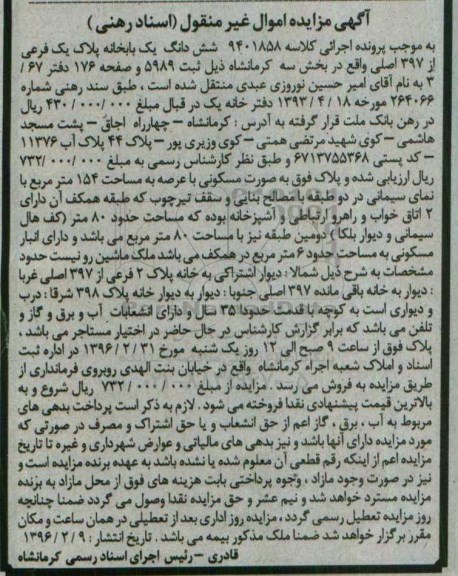 آگهی مزایده اموال غیر منقول (اسناد رهنی)
به موجب پرونده اجرائی کلاسه ۹۴۰۱۸۵۸ شش دانگ یک بابخانه پلاک یک فرعی
از ۳۹۷ اصلی واقع در بخش سه کرمانشاه ذیل ثبت ۵۹۸۹ و صفحه ۱۷۶ دفتر ۶۷ /
۳ به نام آقای امیر حسین نوروزی عبدی منتقل شده است ، طبق سند رهنی شماره
۲۶۴۰۶۶ مورخه ۱۸ / ۴ / ۱۳۹۳ دفتر خانه یک در قبال مبلغ ۴۳۰/۰۰۰/۰۰۰ ریال
در رهن بانک ملت قرار گرفته به آدرس : کرمانشاه – چهارراه اجاق – پشت مسجد
هاشمی – کوی شهید مرتضی همتی – کوی وزیری پور – پلاک ۴۴ پلاک آب ۱۱۳۷۶
– کد پستی ۶۷۱۳۷۵۵۳۶۸ و طبق نظر کارشناس رسمی به مبلغ ۷۳۲/۰۰۰/۰۰۰
ریال ارزیابی شده و پلاک فوق به صورت مسکونی با عرصه به مساحت ۱۵۴ متر مربع با
نمای سیمانی در دو طبقه با مصالح بنایی و سقف تیرچوب که طبقه همکف آن دارای
۲ اتاق خواب و راهرو ارتباطی و آشپزخانه بوده که مساحت حدود ۸۰ متر (کف هال
سیمانی و دیوار بلکا) دومین طبقه نیز با مساحت ۸۰ متر مربع می باشد و دارای انبار
مسکونی به مساحت حدود ۶ متر مربع در همکف می باشد ملک ماشین رو نیست حدود
مشخصات به شرح ذیل شمالا: دیوار اشتراکی به خانه پلاک ۲ فرعی از ۳۹۷ اصلی غربا
: دیوار به خانه باقی مانده ۳۹۷ اصلی جنوبا : دیوار به دیوار خانه پلاک ۳۹۸ شرقا : درب
و دیواری است به کوچه با قدمت حدودا ۳۵ سال و دارای انشعابات آب و برق و گاز و
تلفن می باشد که برابر گزارش کارشناس در حال حاضر در اختیار مستاجر می باشد .
پلاک فوق از ساعت ۹ صبح الی ۱۲ روز یک شنبه مورخ ۳۱ / ۲ / ۱۳۹۶ در اداره ثبت
اسناد و املاک شعبه اجراء کرمانشاه واقع در خیابان بنت الهدی روبروی فرمانداری از
طریق مزایده به فروش می رسد . مزایده از مبلغ ۷۳۲/۰۰۰/۰۰۰ ریال شروع و به
بالاترین قیمت پیشنهادی نقدا فروخته می شود . لازم به ذکر است پرداخت بدهی های
مربوط به آب ، برق ، گاز اعم از حق انشعاب و یا حق اشتراک و مصرف در صورتی که
مورد مزایده دارای آنها باشد و نیز بدهی های مالیاتی و عوارض شهرداری و غیره تا تاریخ
مزایده اعم از اینکه رقم قطعی آن معلوم شده یا نشده باشد به عهده برنده مزایده است و
نیز در صورت وجود مازاد ، وجوه پرداختی بابت هزینه های فوق از محل مازاد به برنده
مزایده مسترد خواهد شد و نیم عشر و حق مزایده نقدا وصول می گردد ضمنا چنانچه
روز مزایده تعطیل رسمی گردد ، مزایده روز اداری بعد از تعطیلی در همان ساعت و مکان
مقرر برگزار خواهد شد ضمنا ملک مذکور بیمه می باشد . تاریخ انتشار : ۹ / ۲ / ۱۳۹۶
قادری – رئیس اجرای اسناد رسمی کرمانشاه